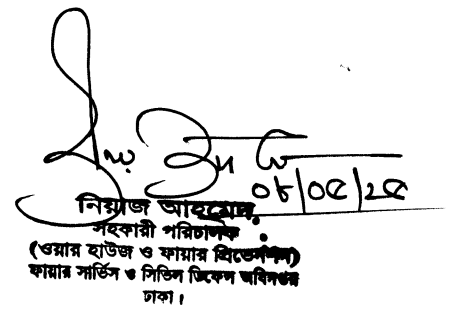 ০৮/০৫/২৫
নিয়াজ আহমেদ
সহকারী পরিচালক
(ওয়ার হাউজ ও ফায়ার প্রিভেনশন)
ফায়ার সার্ভিস ও সিভিল ডিফেন্স অধিদপ্তর
ঢাকা।